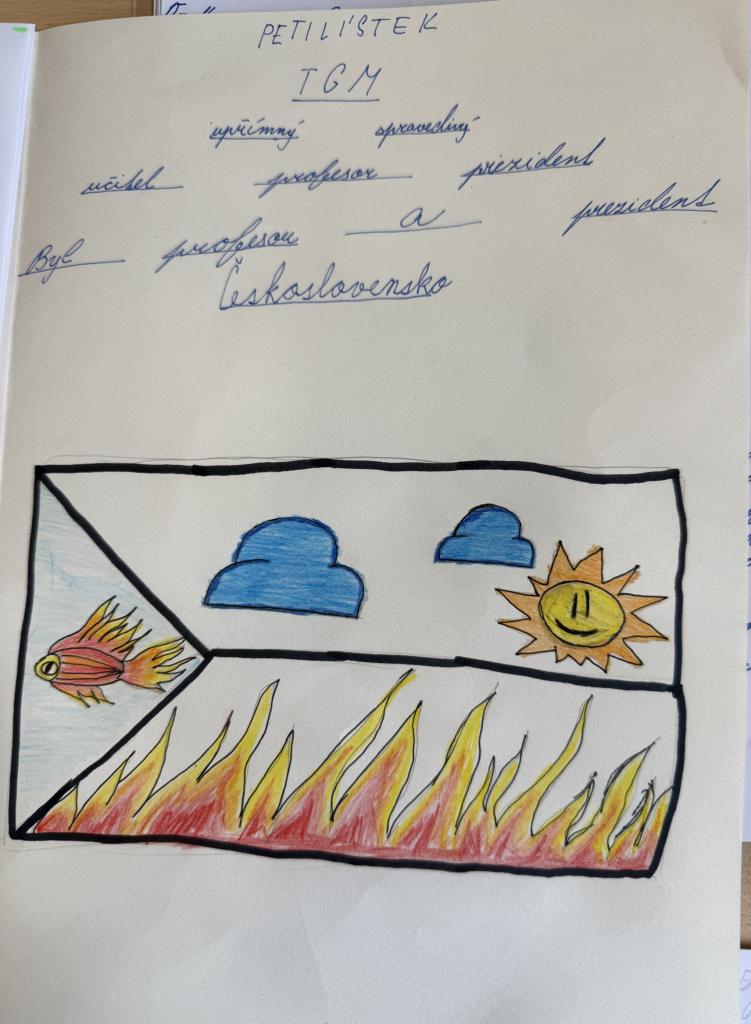 PETILÍSTEK
TGM
upřímný spravedivý
učitel profesor prezident
Byl profesou a prezident
Československo